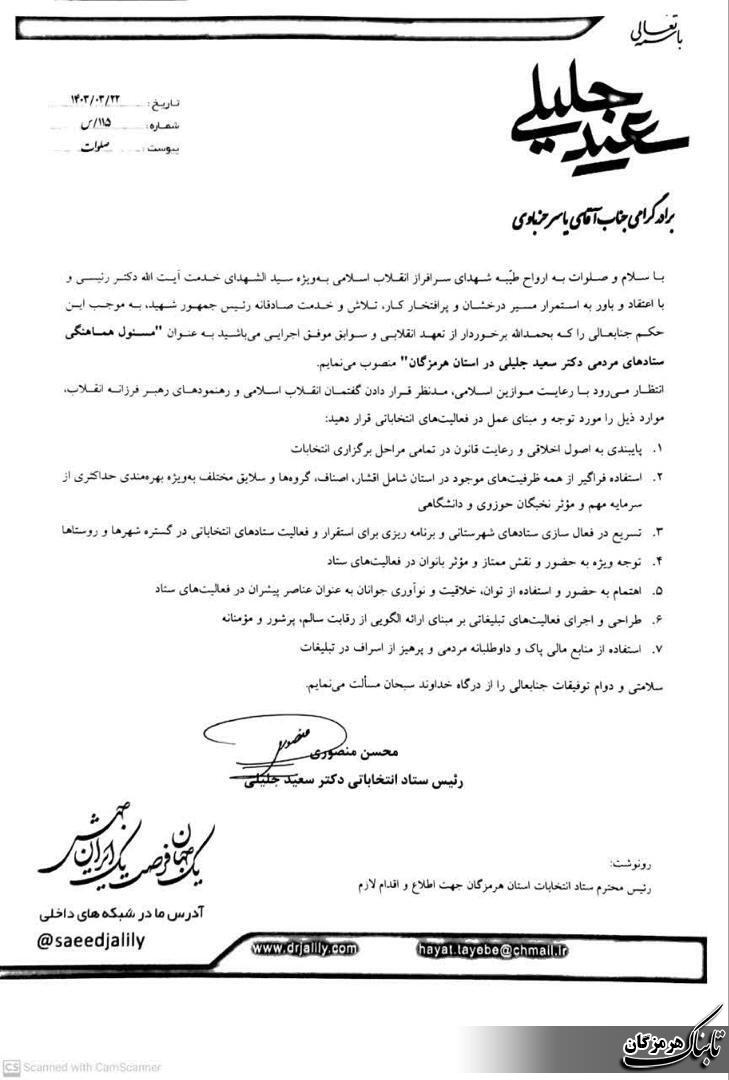 باسمه تعالی
سعید جلیلی
تاریخ: ۱۴۰۳/۰۳/۲۲
شماره: ۱۱۵/س
پیوست: صلوات
برادر گرامی جناب آقای یاسر حزباوی
با سلام و صلوات به ارواح طیّبه شهدای سرافراز انقلاب اسلامی به‌ویژه سید الشهدای خدمت آیت الله دکتر رئیسی و
با اعتقاد و باور به استمرار مسیر درخشان و پرافتخار کار، تلاش و خدمت صادقانه رئیس جمهور شهید، به موجب این
حکم جنابعالی را که بحمدالله برخوردار از تعهد انقلابی و سوابق موفق اجرایی می‌باشید به عنوان "مسئول هماهنگی
ستادهای مردمی دکتر سعید جلیلی در استان هرمزگان" منصوب می‌نمایم.
انتظار می‌رود با رعایت موازین اسلامی، مدنظر قرار دادن گفتمان انقلاب اسلامی و رهنمودهای رهبر فرزانه انقلاب،
موارد ذیل را مورد توجه و مبنای عمل در فعالیت‌های انتخاباتی قرار دهید:
۱. پایبندی به اصول اخلاقی و رعایت قانون در تمامی مراحل برگزاری انتخابات
۲. استفاده فراگیر از همه ظرفیت‌های موجود در استان شامل اقشار، اصناف، گروه‌ها و سلایق مختلف به‌ویژه بهره‌مندی حداکثری از
سرمایه مهم و مؤثر نخبگان حوزوی و دانشگاهی
۳. تسریع در فعال سازی ستادهای شهرستانی و برنامه ریزی برای استقرار و فعالیت ستادهای انتخاباتی در گستره شهرها و روستاها
۴. توجه ویژه به حضور و نقش ممتاز و مؤثر بانوان در فعالیت‌های ستاد
۵. اهتمام به حضور و استفاده از توان، خلاقیت و نوآوری جوانان به عنوان عناصر پیشران در فعالیت‌های ستاد
۶. طراحی و اجرای فعالیت‌های تبلیغاتی بر مبنای ارائه الگویی از رقابت سالم، پرشور و مؤمنانه
۷. استفاده از منابع مالی پاک و داوطلبانه مردمی و پرهیز از اسراف در تبلیغات
سلامتی و دوام توفیقات جنابعالی را از درگاه خداوند سبحان مسألت می‌نمایم.
منصوری
محسن منصوری
رئیس ستاد انتخاباتی دکتر سعید جلیلی
رونوشت:
رئیس محترم ستاد انتخابات استان هرمزگان جهت اطلاع و اقدام لازم
یک جهان فرصت یک ایران جهش
آدرس ما در شبکه های داخلی
@saeedjalily
www.drjalily.com
hayat.tayebe@chmail.ir
تابناک هرمزگان
CS Scanned with CamScanner